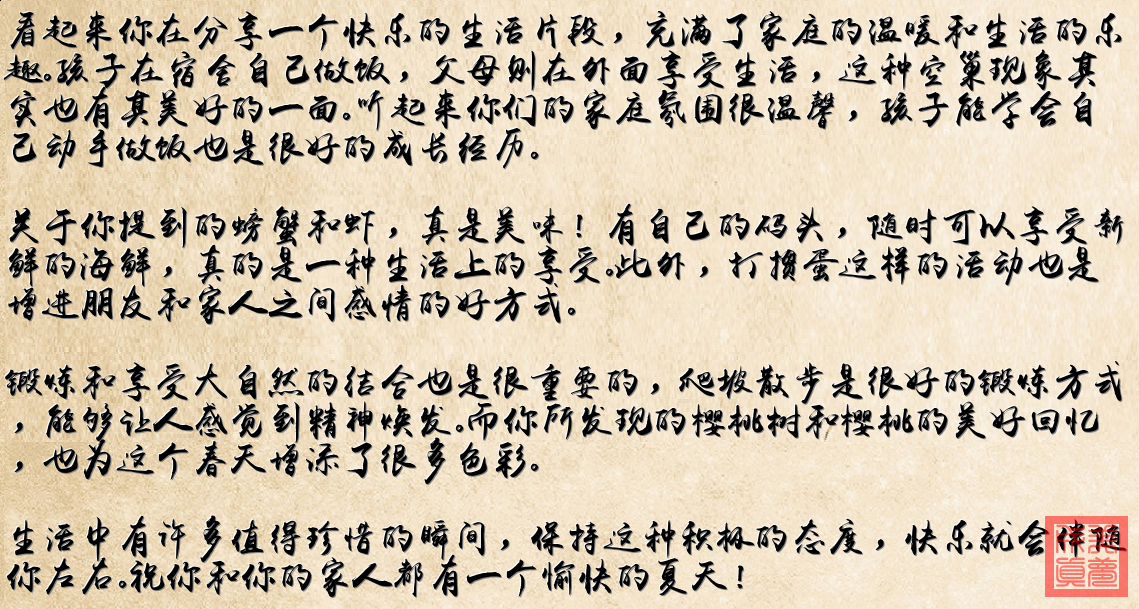 看起来你在分享一个快乐的生活片段，充满了家庭的温暖和生活的乐
趣。孩子在宿舍自己做饭，父母则在外面享受生活，这种空巢现象其
实也有其美好的一面。听起来你们的家庭氛围很温馨，孩子能学会自
己动手做饭也是很好的成长经历。
关于你提到的螃蟹和虾，真是美味！有自己的码头，随时可以享受新
鲜的海鲜，真的是一种生活上的享受。此外，打掼蛋这样的活动也是
增进朋友和家人之间感情的好方式。
锻炼和享受大自然的结合也是很重要的，爬坡散步是很好的锻炼方式
，能够让人感觉到精神焕发。而你所发现的樱桃树和樱桃的美好回忆
，也为这个春天增添了很多色彩。
生活中有许多值得珍惜的瞬间，保持这种积极的态度，快乐就会伴随
你左右。祝你和你的家人都有一个愉快的夏天！